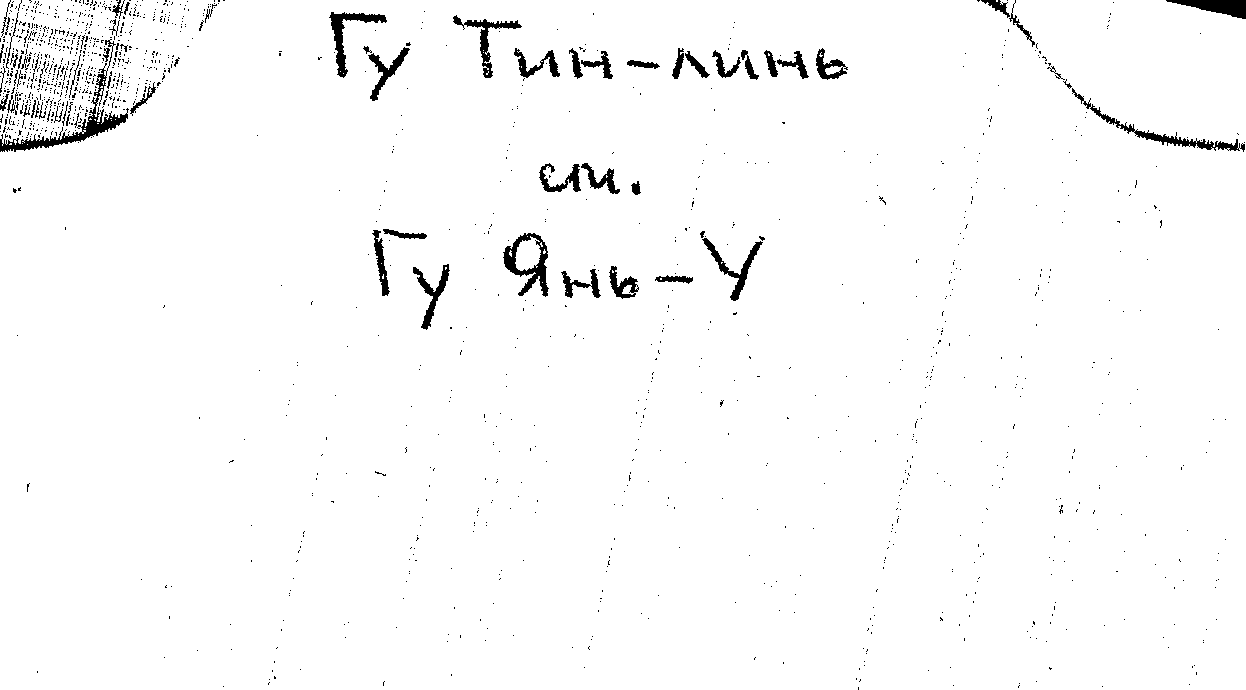 Гу Тин-линь
см.
Гу Янь-У